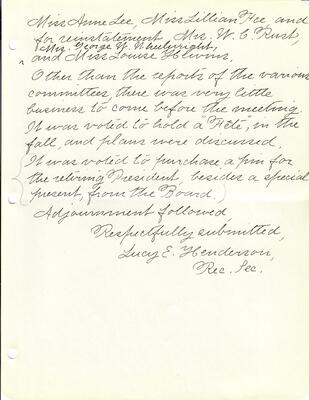 Miss Anne Lee, Miss Lillian Fee, and
for reinstatement, Mrs. W. C. Rust,
Mrs. George W. Wheelwright,
and Miss Louise Hewins.
Other than the reports of the various
committees there was very little
business to come before the meeting.
It was voted to hold a "Fête", in the
fall, and plans were discussed.
(It was voted to purchase a pin for
the retiring President, besides a special
present, from the Board.)
Adjournment followed,
Respectfully submitted,
Lucy E. Henderson,
Rec. Sec.